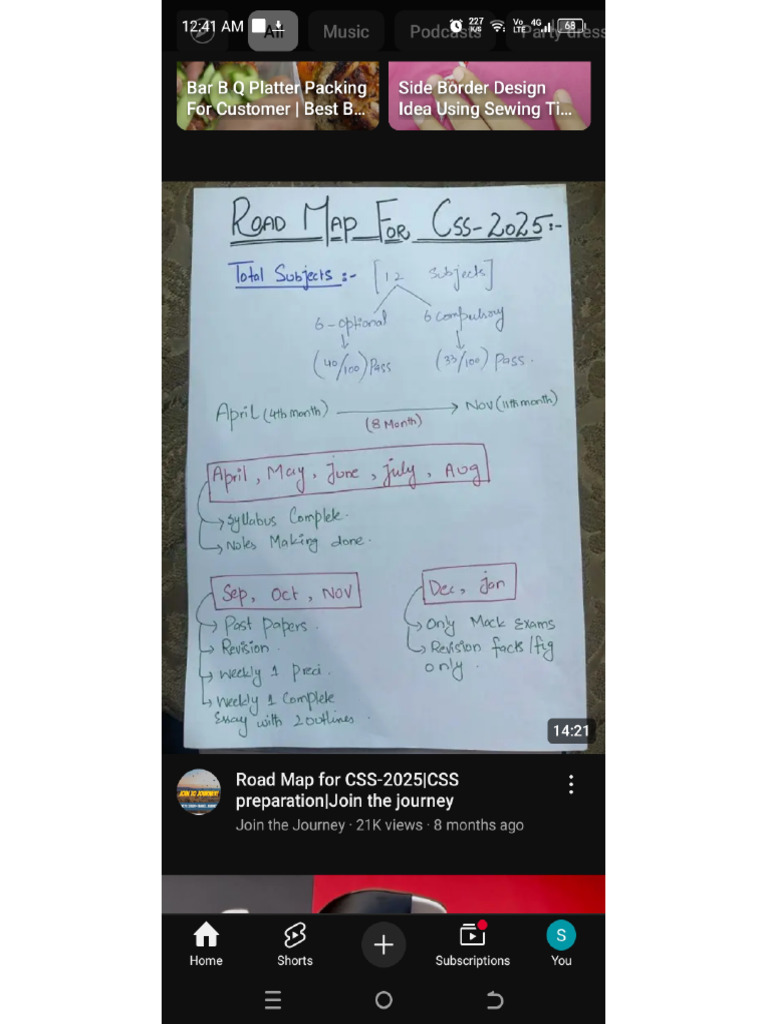 12:41 AM 227 K/S Vo LTE 4G 68
All Music Podcasts Party dress
Bar B Q Platter Packing
For Customer | Best B...
Side Border Design
Idea Using Sewing Ti...
ROAD MAP FOR CSS-2025:-
Total Subjects :- [12 Subjects]
6-optional 6 compulsory
(40/100) Pass (33/100) Pass.
April (4th month) (8 Month) Nov (11th month)
April, May, June, july, Aug
Syllabus Complete.
Notes Making done.
Sep, Oct, Nov
Past Papers.
Revision.
Weekly 1 Preci.
Weekly 1 Complete
Essay with 2 outlines.
Dec, Jan
Only Mock Exams
Revision facts/fig
only.
14:21
Road Map for CSS-2025|CSS
preparation|Join the journey
Join the Journey · 21K views · 8 months ago
Home Shorts Subscriptions S You